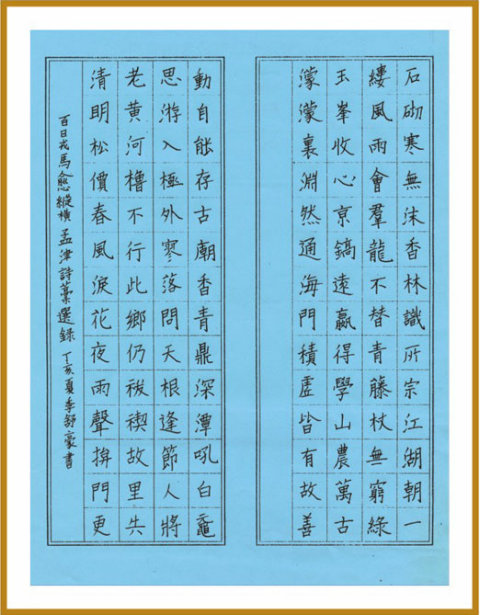 石砌寒無沫香林識所宗江湖朝一
縷風雨會羣龍不替青藤杖無窮綠
玉峯收心京鎬遠嬴得學山農萬古
濛濛裏淵然通海門積虛皆有故善
動自能存古廟香青鼎深潭吼白黿
思游入極外寥落問天根逢節人將
老黄河櫓不行此鄉仍祓禊故里失
清明松價春風淚花夜雨聲揜門更
百日戎馬愈縱橫 孟津詩藁選錄 丁亥夏季舒豪書